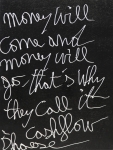 money will
come and
money will
go that is why
they call it
cashflow